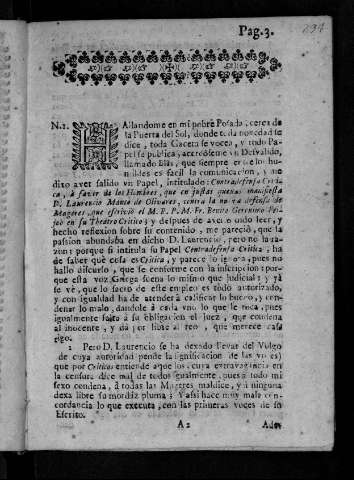 Pag. 3.
234
N. 1. HAllandome en mi pobre Posada, cerca de
la Puerta del Sol, donde toda novedad se
dice, toda Gaceta se vocea, y todo Pa-
pel se publica, acercóseme un Desvalido,
llamado Blàs, que siempre entre los hu-
mildes es facil la comunicacion, y me
dixo aver salido un Papel, intitulado: Contradefensa Criti-
ca, à favor de los Hombres, que en justas quexas manifiesta
D. Laurencio Manco de Olivares, contra la nueva defensa de
Mugeres, que escriviò el M. R. P. M. Fr. Benito Geronimo Fei-
joò en su Theatro Critico; y despues de averlo oido leer, y
hecho reflexion sobre su contenido, me pareciò, que la
passion abundaba en dicho D. Laurencio, pero no la ra-
zon: porque si intitula su Papel Contradefensa Critica, ha
de saber què cosa es Critica, y parece lo ignora, pues no
hallo discurso, que se conforme con la inscripcion: por-
que esta voz Griega suena lo mismo que Judicial; y yà
se vè, que lo facio de este empleo es todo autorizado,
y con igualdad ha de atender à calificar lo bueno, y con-
denar lo malo, dandole à cada uno lo que le toca, pues
igualmente falta à su obligacion el juez, que condena
al inocente, y dà por libre al reo, que merece casti-
go.
2 Pero D. Laurencio se ha dexado llevar del Vulgo
de cuya autoridad pende la significacion de las voces)
que por Criticos entiende aquellos, cuya extravagancia en
la censura dice mal de todos igualmente, pues à todo mi
sexo condena, à todas las Mugeres maldice, y à ninguna
dexa libre su mordàz pluma; Y assi hace muy mala con-
cordancia lo que executa, con las primeras voces de su
Escrito.
A 2 Ader